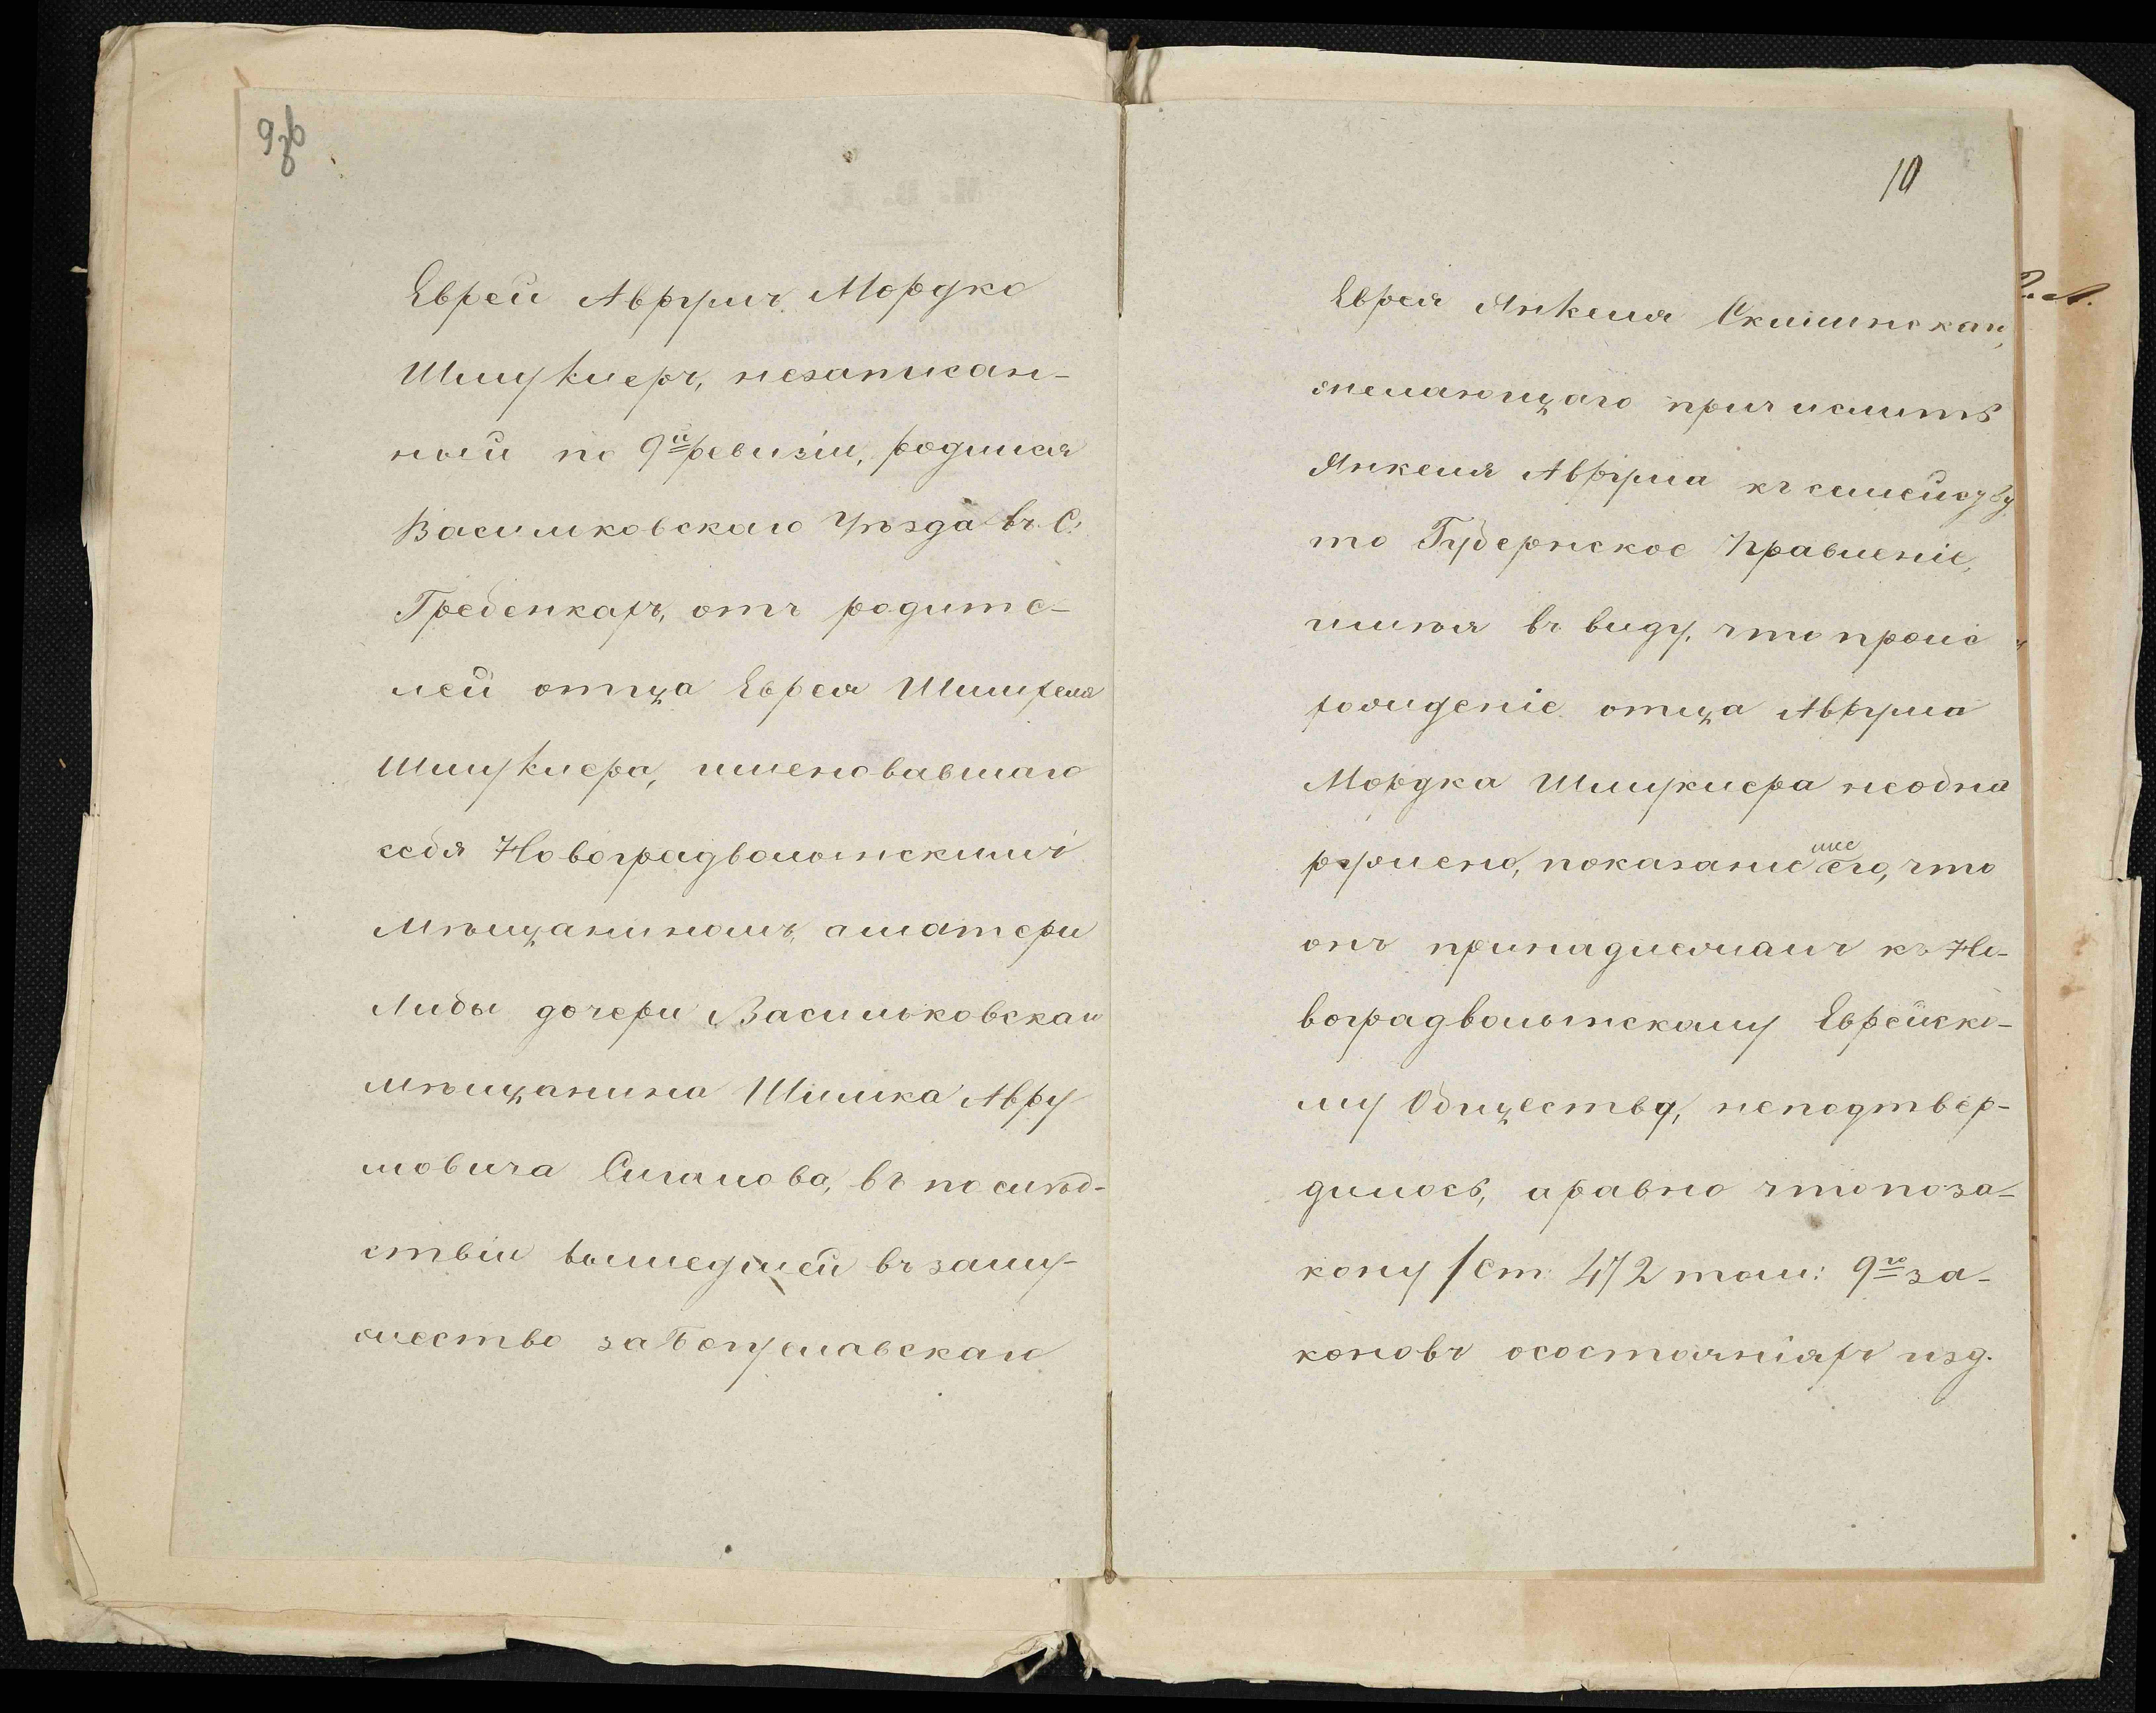 9об
Еврей Аврумъ Мордко
Шмуклеръ, незаписан-
ный по 9й ревизіи, родился
Васильковскаго Уѣзда въ С.
Гребенкахъ, отъ родите-
лей отца Еврея Шмиреля
Шмуклера, именовавшаго
себя Новоградволынскимъ
Мѣщаниномъ, а матери
Либы дочери Васильковскаго
мѣщанина Шлiомка Авру
мовича, въ послѣд-
ствіи вышедшей въ заму-
жество за Богуславскаго
10
Еврея Янкеля
желающаго причислить
Янкеля Аврума къ семейству
то Губернское Правленіе,
имѣя въ виду, что проис
хожденіе отца Аврума
Мордка Шмуклера необна
ружено, показаніе же его, что
онъ принадлежалъ къ Но-
воградволынскому Еврейско-
му Обществу, неподтвер-
дилось, а равно что по за-
кону / Ст: 472 том: 9го за-
коновъ о состояніяхъ изд.